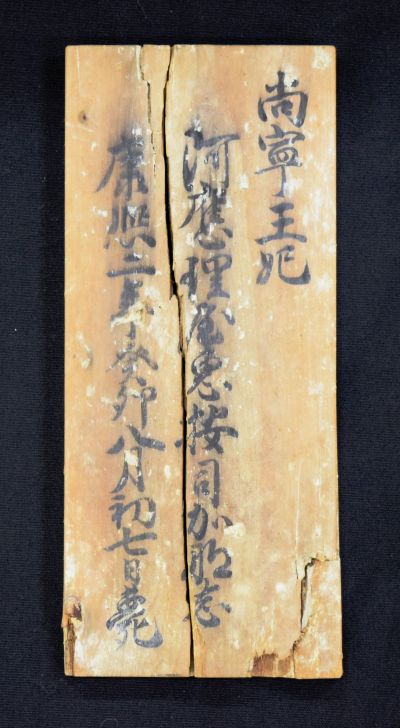 尚寧王妃
阿應理屋惠按司加那志
康熙二年癸卯八月初七日薨